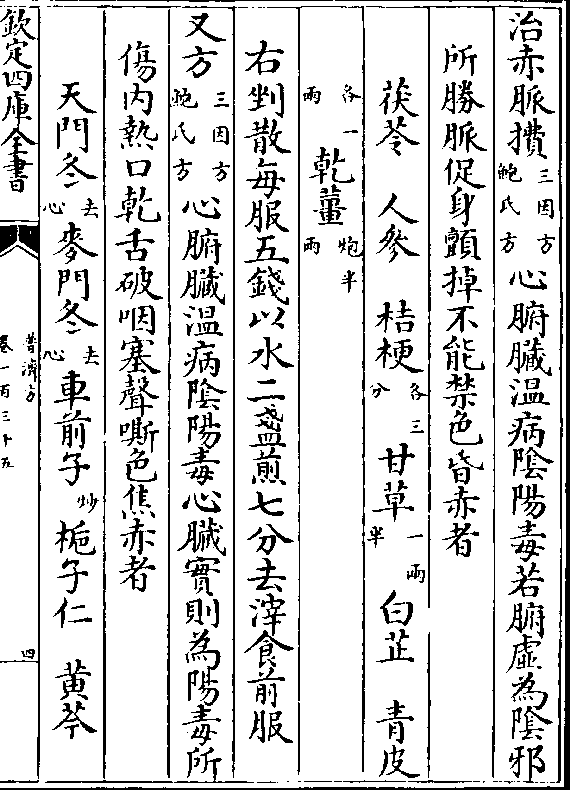 治赤脈攢三因方鮑氏方心腑臟溫病陰陽毒若腑虛為陰邪
所勝脈促身顫掉不能禁色皆赤者
茯苓　人參　桔梗各三分　甘草一兩半　白芷　青皮
各一兩　乾薑炮半兩
右剉散每服五錢以水二盞煎七分去滓食前服
又方三因方鮑氏方心腑臟溫病陰陽毒心臟實則為陽毒所
傷內熱口乾舌破咽塞聲嘶色焦赤者
天門冬去心　麥門冬去心　車前子炒　梔子仁　黃芩
欽定四庫全書
普濟方
卷一百三十五
四